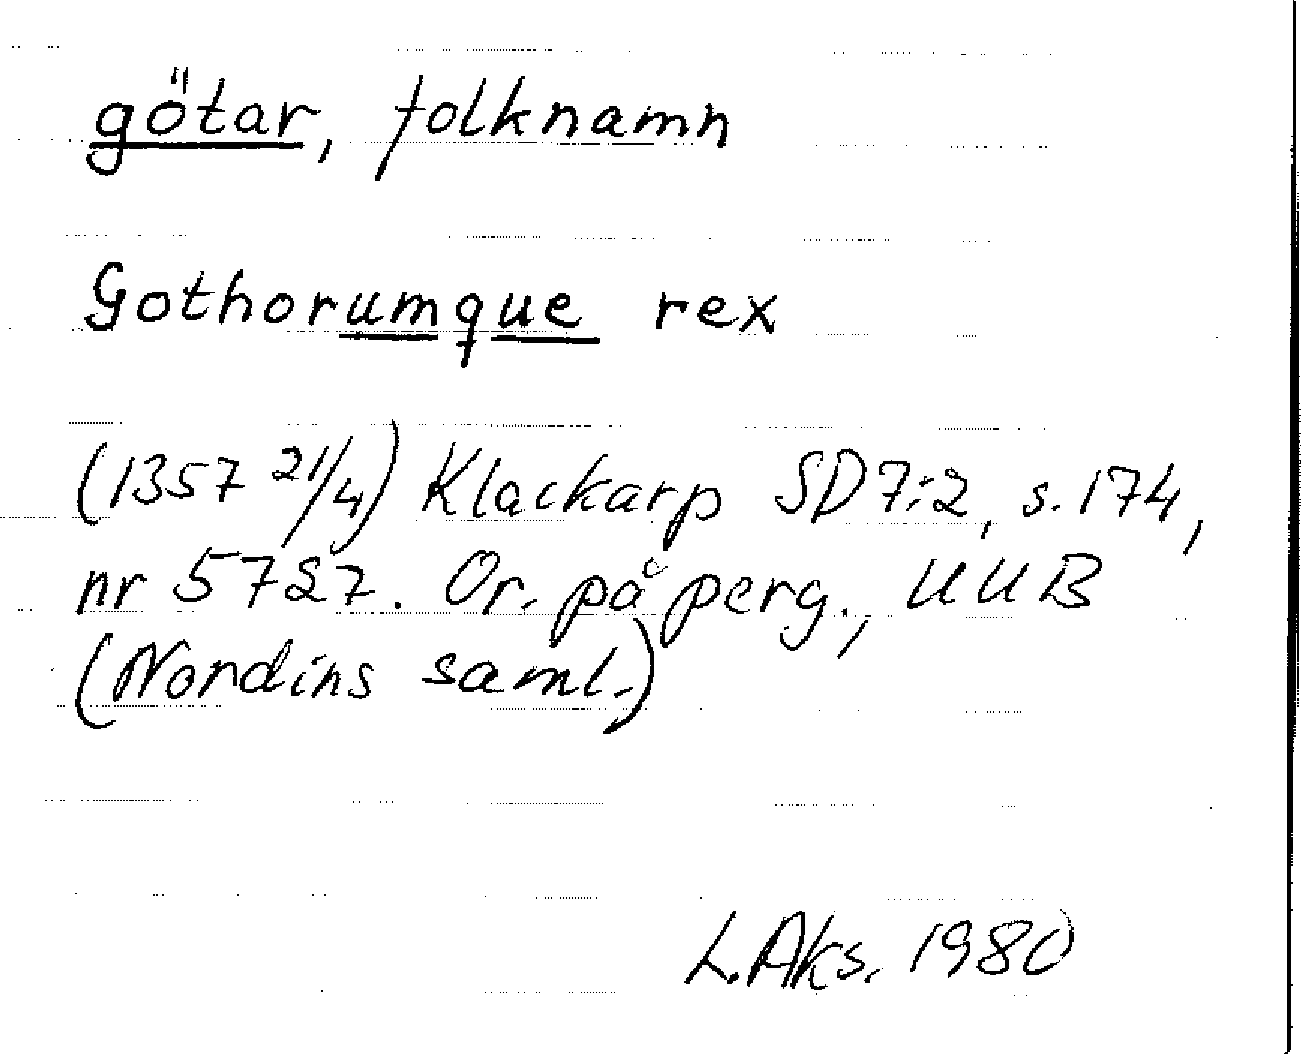 götar, folknamn
Gothorumque rex
(1357 21/4) Klackarp SD 7:2, s. 174,
nr 5727. Or. på perg., UUB
(Nordins saml.)
L. Aks. 1980